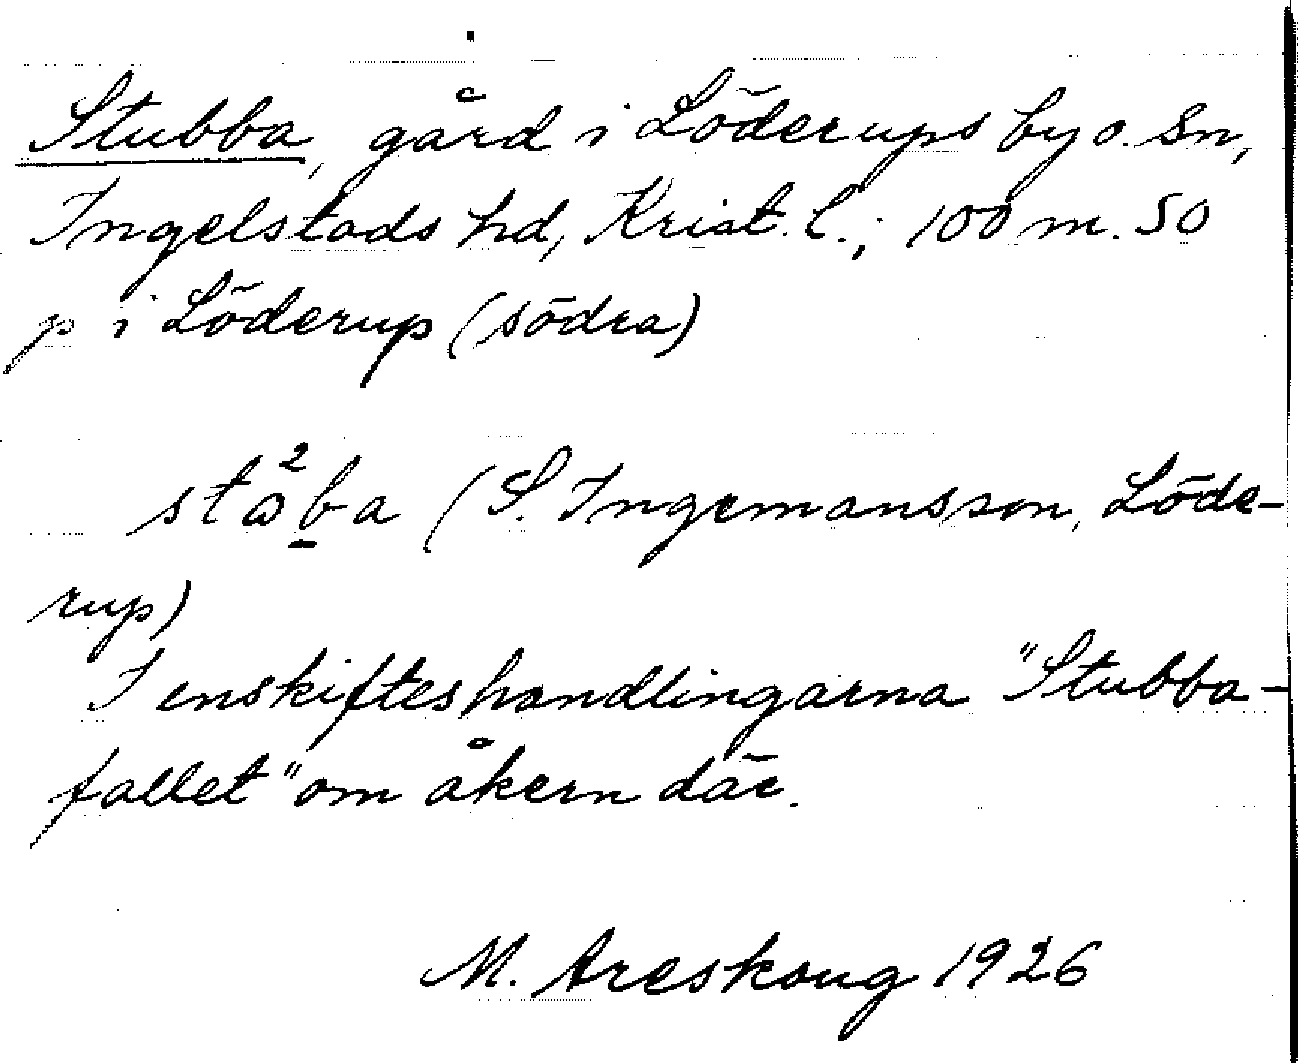 Stubba, gård i Löderups by o. Sn,
Ingelstads hd, Krist. l.; 100 m. SO
p i Löderup (södra)
stω²b̠a (S. Ingemansson, Löde-
rup)
I enskifteshandlingarna "Stubba-
fallet" om åkern där.
M. Areskoug 1926